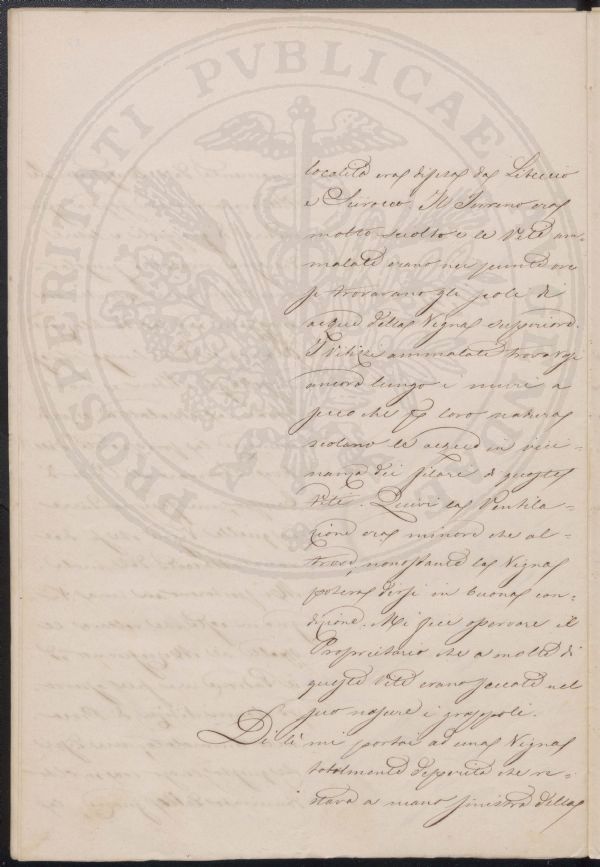 PROSPERITATI PVBLICAE
località era difesa dal Libeccio
e Scirocco. Il Terreno era
molto sciolto e le Viti am-
malate erano nei punti ove
si trovavano gli scoli di
acque della Vigna superiore.
Viti ammalate trovavansi
ancora lungo i muri a
secco che p loro natura
scolano le acque in vici-
nanza dei filari di queste
Viti. Quivi la Ventila-
zione era minore che al-
trove, nonostante la Vigna
poteva dirsi in buona con-
dizione. Mi fece osservare il
Proprietario che a molte di
queste Viti erano seccati nel
suo nascere i grappoli.
Di lì mi portai ad una Vigna
totalmente deperita che re-
stava a mano sinistra della